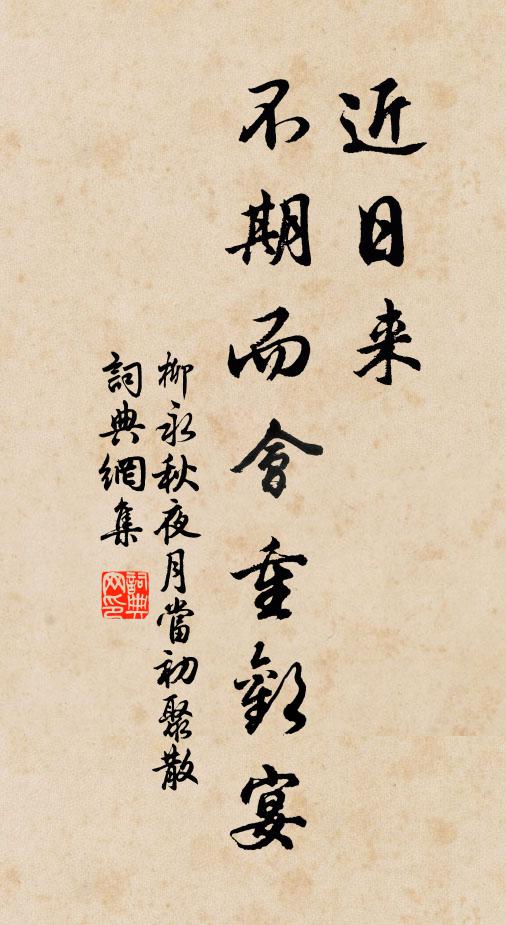 近日来
不期而會重歡宴
柳永秋夜月當初聚散
詞典網集
詞典网印